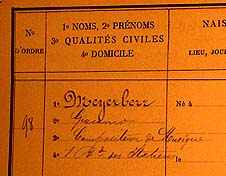 No
D'ORDRE
1o NOMS, 2o PRÉNOMS
3o QUALITÉS CIVILES
4o DOMICILE
NAIS
LIEU, JOU
98
1o Meyerbeer
2o Giacomo
3o Compositeur de Musique
4o 1 Bd des Italiens
Né à
le